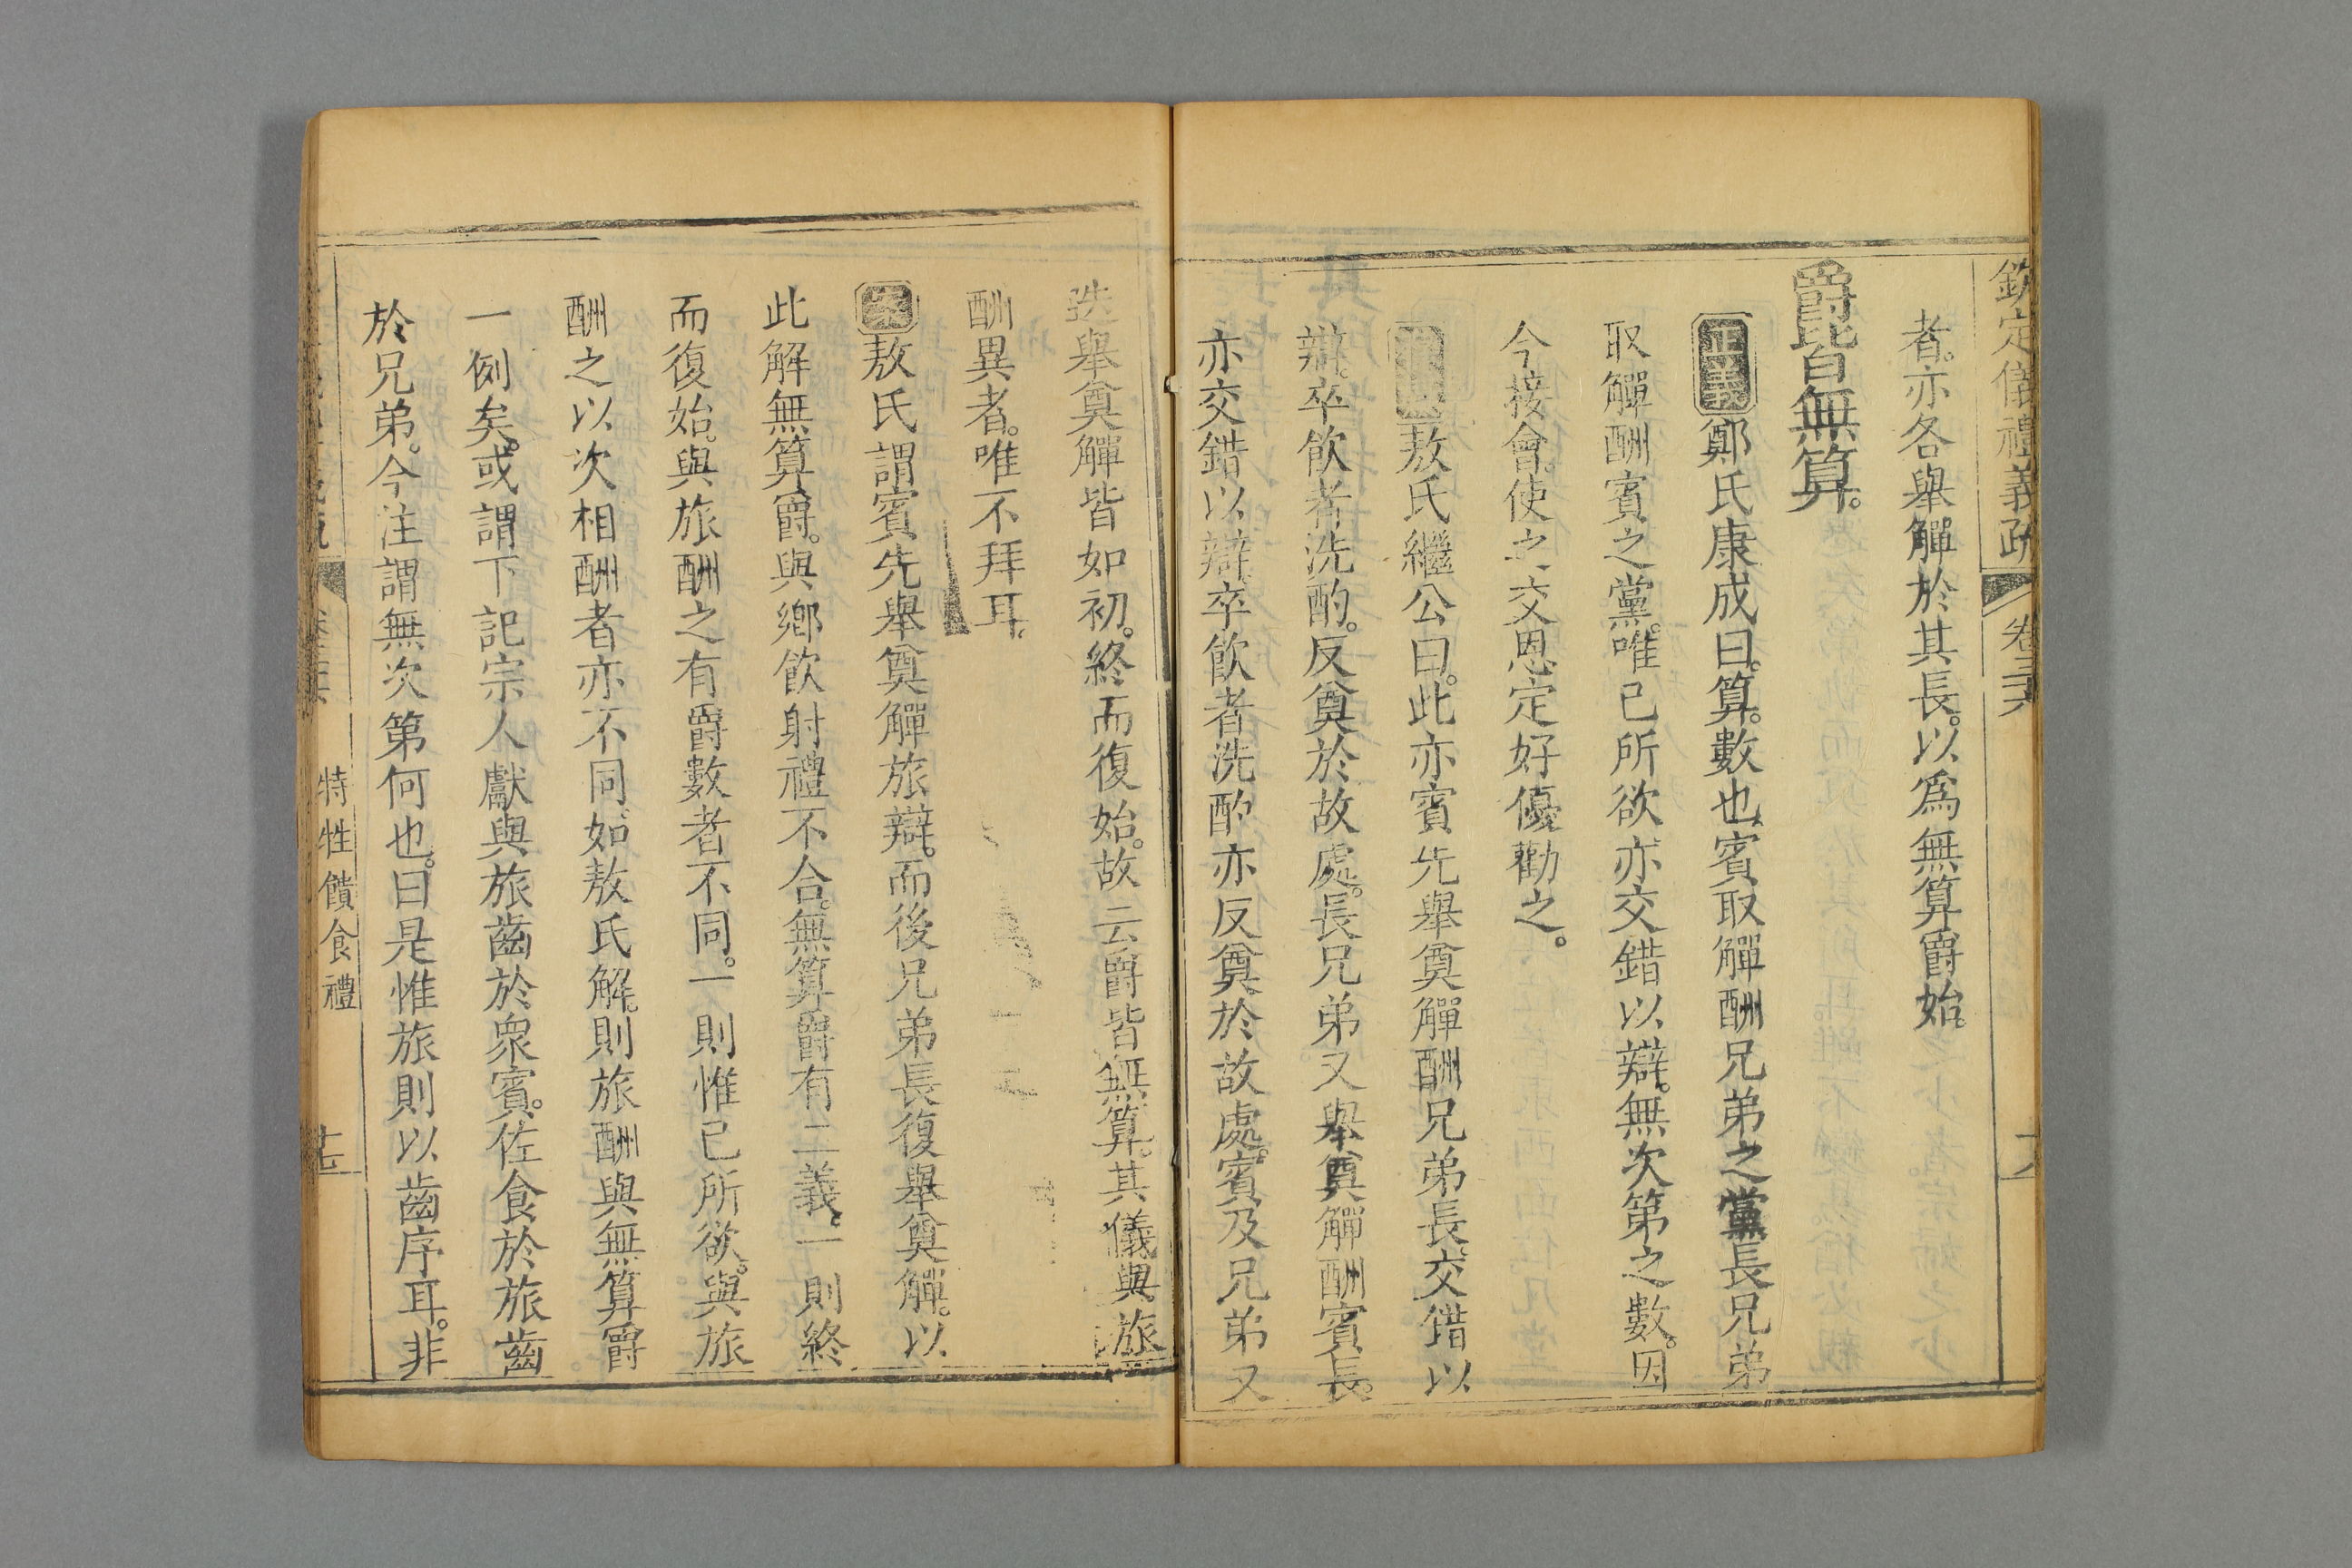 欽定儀禮義疏 卷三六
者。亦各舉觶於其長。以為無算爵始。
爵皆無算。
正義鄭氏康成曰。算。數也。賓取觶酬兄弟之黨。長兄弟
取觶酬賓之黨。唯已所欲。亦交錯以辯。無次第之數。因
今接會。使之交恩定好優勸之。
敖氏繼公曰。此亦賓先舉奠觶酬兄弟長。交錯以
辯。卒飲者洗酌。反奠於故處。長兄弟又舉奠觶酬賓長。
亦交錯以辯。卒飲者洗酌。亦反奠於故處。賓及兄弟又
迭舉奠觶皆如初。終而復始。故云爵皆無算。其儀與旅
酬異者。唯不拜耳。
案敖氏謂賓先舉奠觶旅辯。而後兄弟長復舉奠觶。以
此解無算爵。與鄉飲射禮不合。無算爵有二義。一則終
而復始。與旅酬之有爵數者不同。一則惟已所欲。與旅
酬之以次相酬者亦不同。如敖氏解。則旅酬與無算爵
一例矣。或謂下記宗人獻與旅齒於眾賓。佐食於旅齒
於兄弟。今注謂無次第何也。曰是惟旅則以齒序耳。非
特牲饋食禮 七